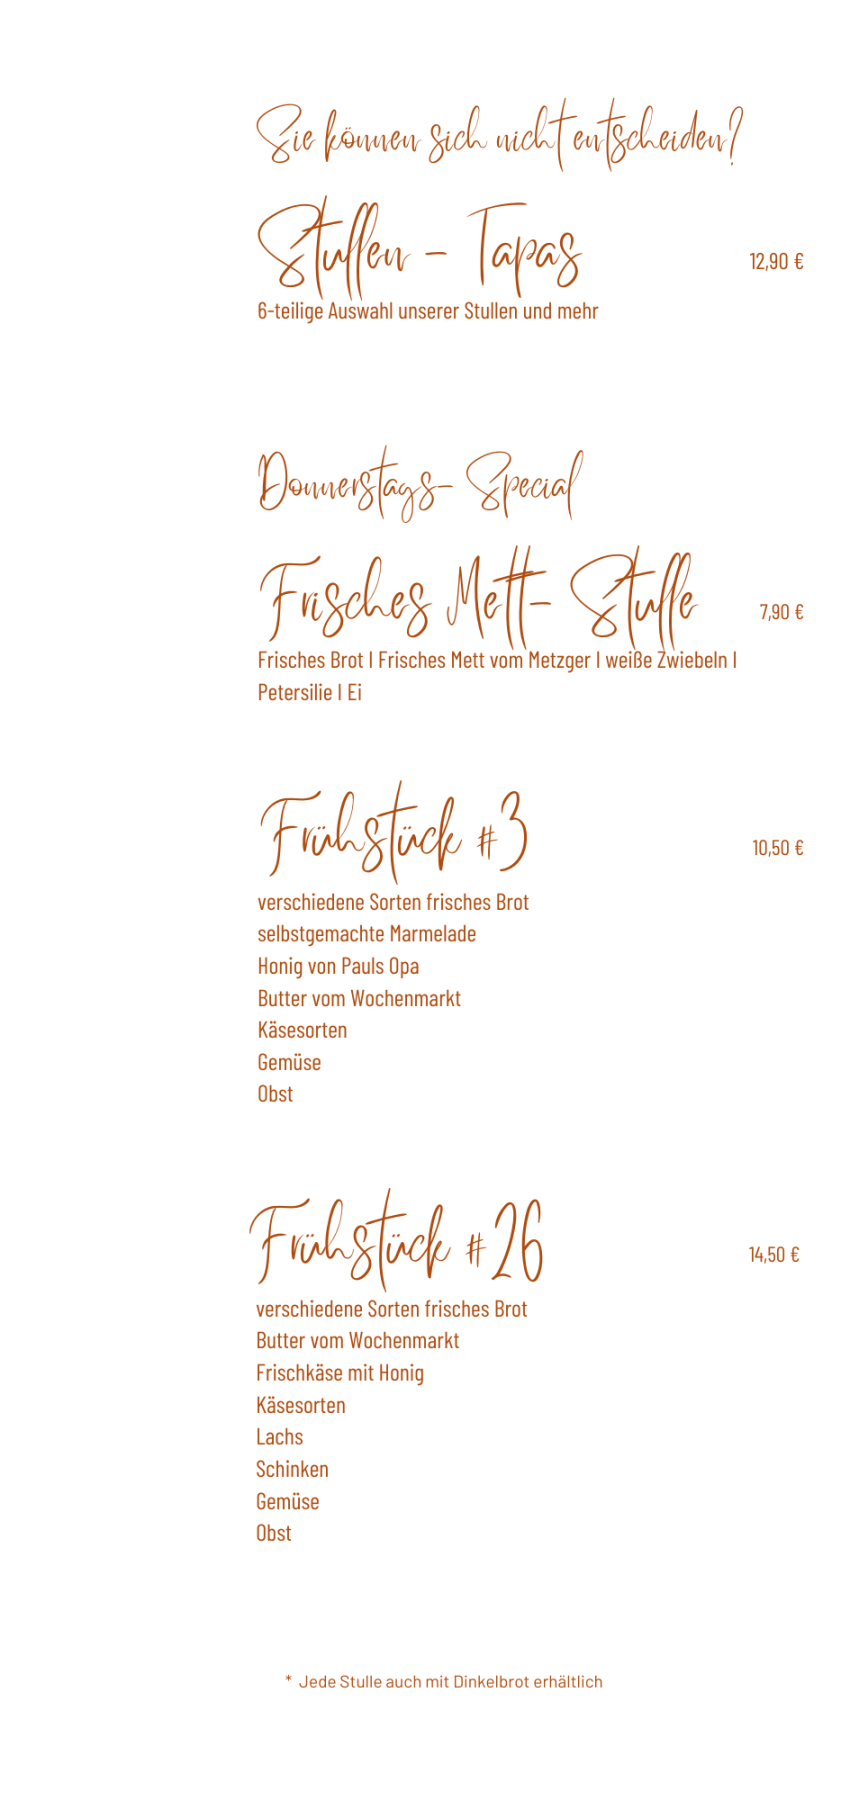 Sie können sich nicht entscheiden?
Stullen - Tapas
12,90 €
6-teilige Auswahl unserer Stullen und mehr
Donnerstags- Special
Frisches Mett- Stulle
7,90 €
Frisches Brot I Frisches Mett vom Metzger I weiße Zwiebeln I
Petersilie I Ei
Frühstück #3
10,50 €
verschiedene Sorten frisches Brot
selbstgemachte Marmelade
Honig von Pauls Opa
Butter vom Wochenmarkt
Käsesorten
Gemüse
Obst
Frühstück #26
14,50 €
verschiedene Sorten frisches Brot
Butter vom Wochenmarkt
Frischkäse mit Honig
Käsesorten
Lachs
Schinken
Gemüse
Obst
* Jede Stulle auch mit Dinkelbrot erhältlich